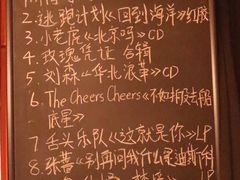 2.逃跑计划《回到海洋》红胶
3.小老虎《北京吗》CD
4.玫瑰凭证 合辑
5.刘森《华北浪革》CD
6.The Cheers Cheers《不如拆法船
底星》
7 舌头乐队《这就是你》LP
8.张蔷《别再问我什么是迪斯科